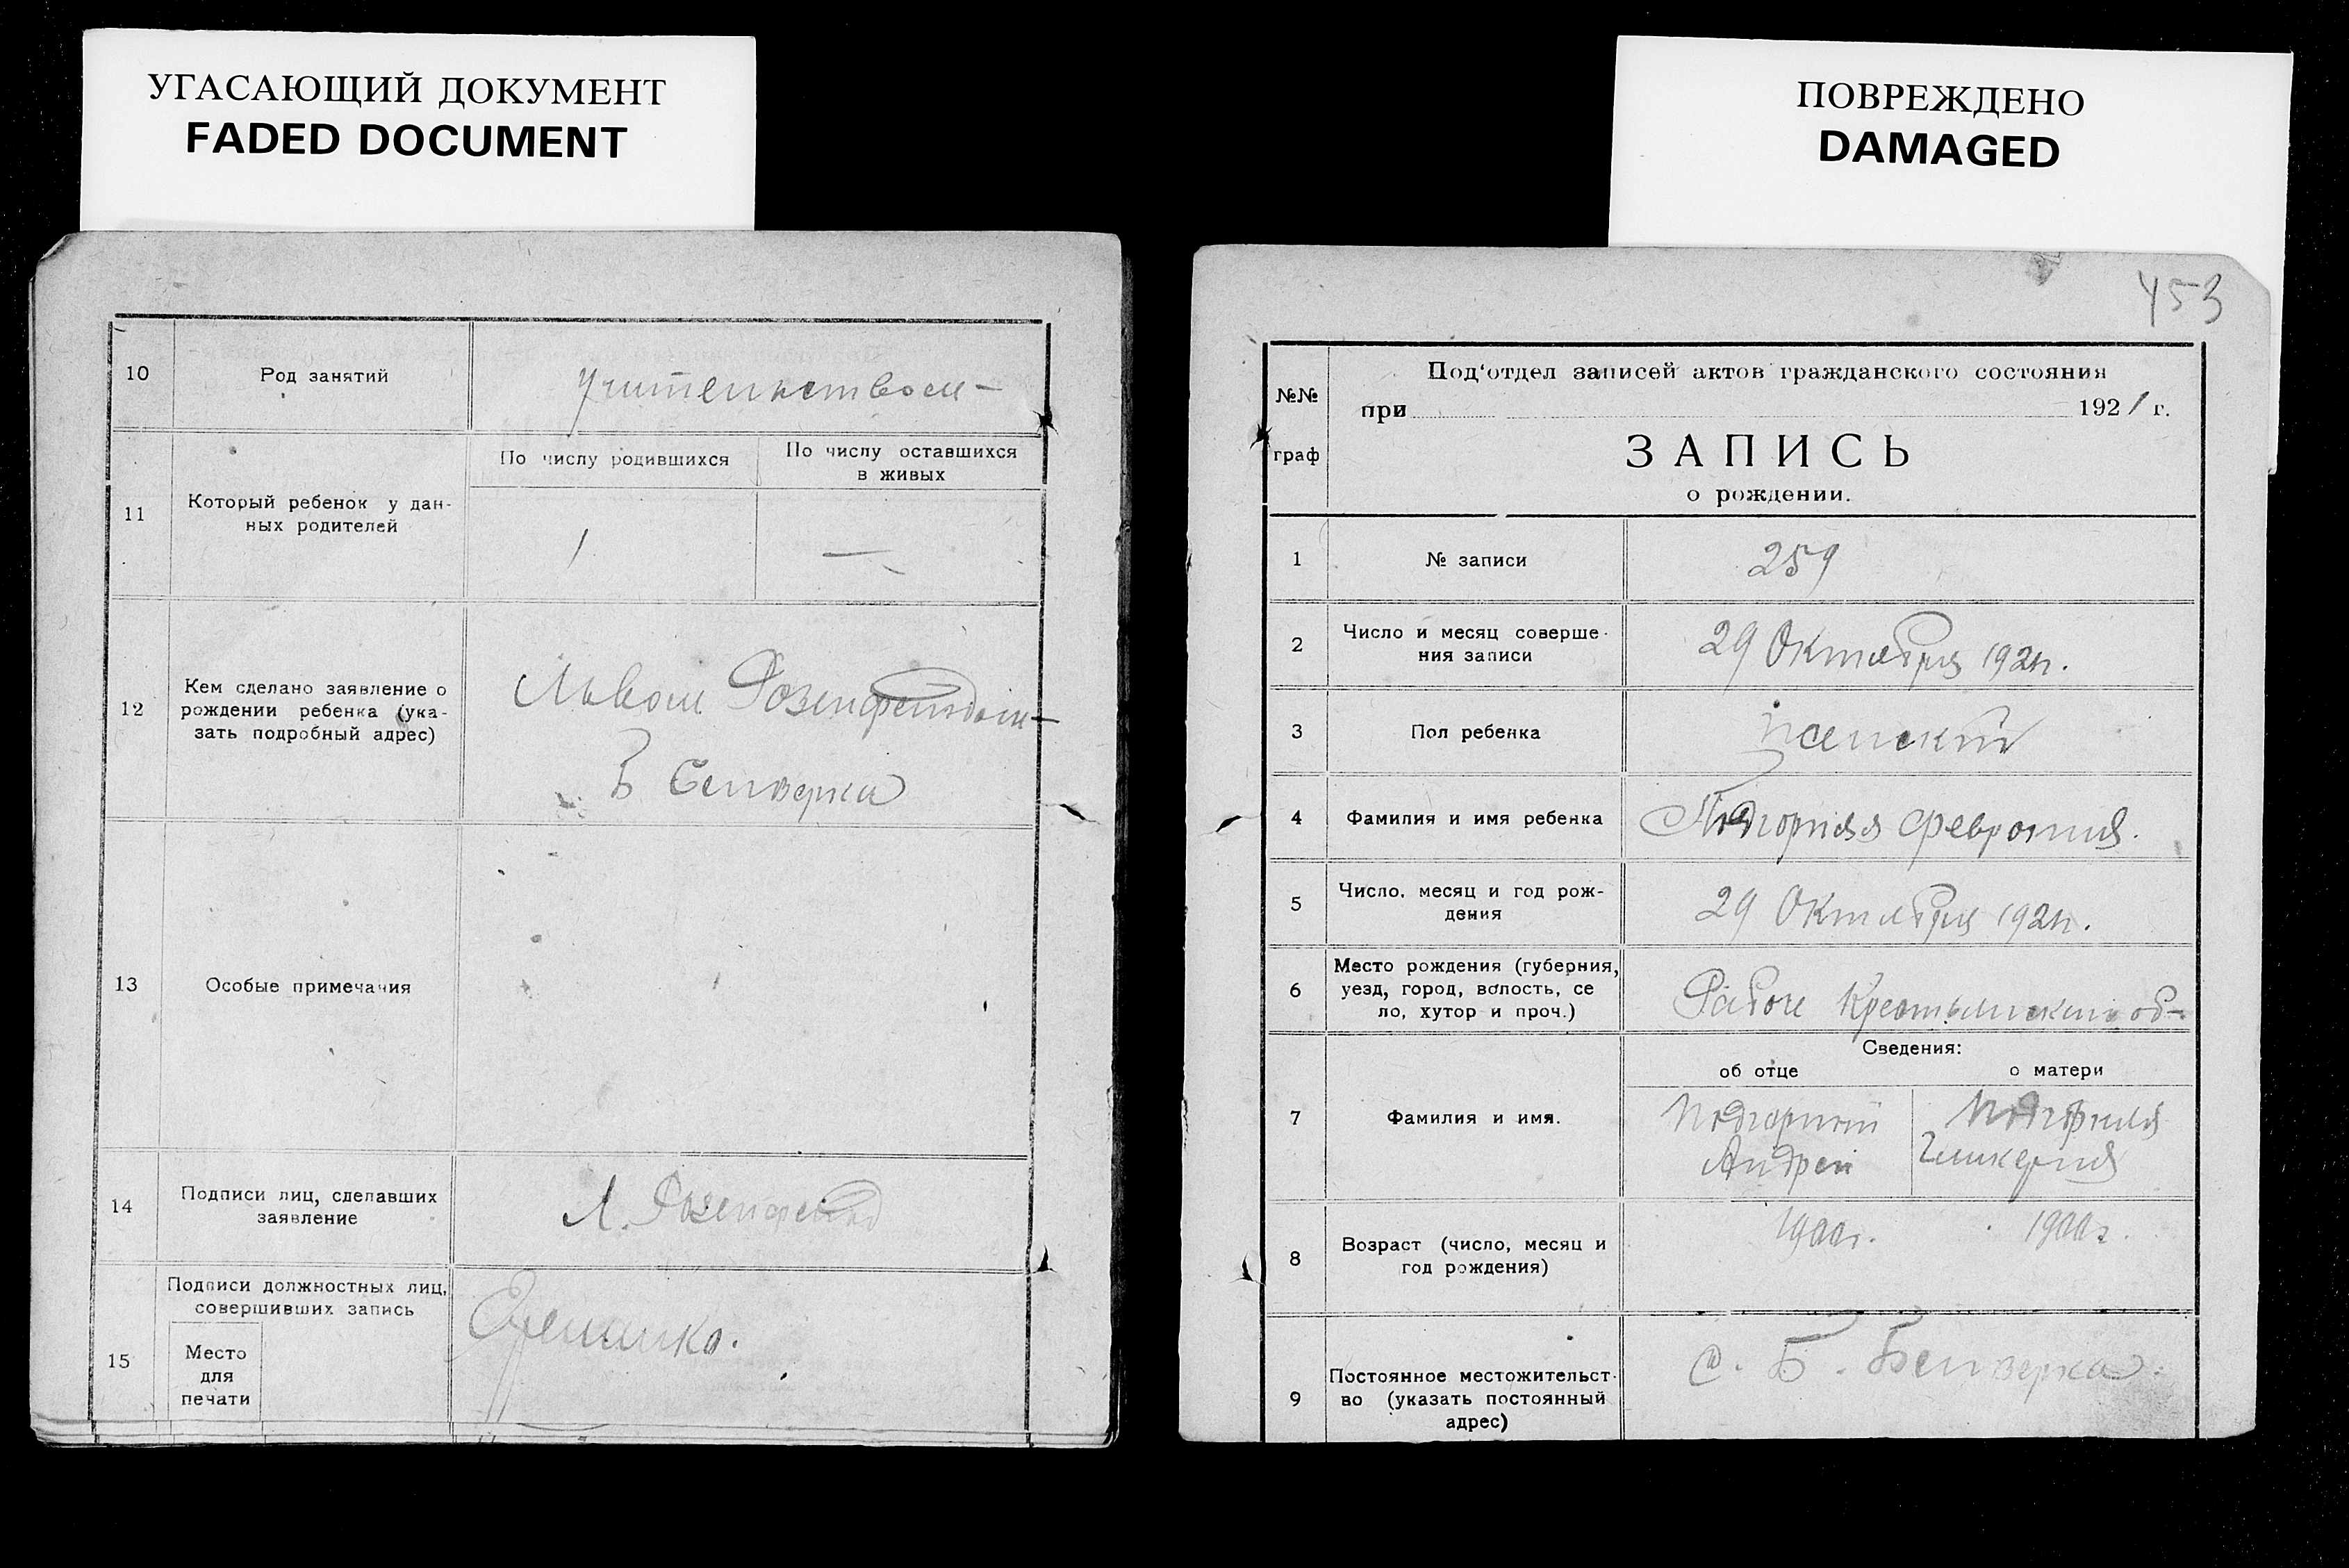 УГАСАЮЩИЙ ДОКУМЕНТ
FADED DOCUMENT
10
Род занятий
Учительством
11
Который ребенок у дан-
ных родителей
По числу родившихся
По числу оставшихся
в живых
1
—
12
Кем сделано заявление о
рождении ребенка (ука-
зать подробный адрес)
Львом Розенфельдом
Б Белозерка
13
Особые примечания
14
Подписи лиц, сделавших
заявление
Л. Розенфельд
15
Подписи должностных лиц,
совершивших запись
Место
для
печати
ПОВРЕЖДЕНО
DAMAGED
453
№№
граф
Под‘отдел записей актов гражданского состояния
при 1921 г.
ЗАПИСЬ
о рождении.
1
№ записи
259
2
Число и месяц соверше-
ния записи
29 Октября 1921г.
3
Пол ребенка
женский
4
Фамилия и имя ребенка
Подгорная Феврония.
5
Число, месяц и год рож-
дения
29 Октября 1921г.
6
Место рождения (губерния,
уезд, город, волость, се
ло, хутор и проч.)
Рабоче Крестьянская об-
Сведения:
об отце
о матери
7
Фамилия и имя.
Подгорный
Андрей
Подгорная
Гликерия
8
Возраст (число, месяц и
год рождения)
1900г.
1900г.
9
Постоянное местожительст-
во (указать постоянный
адрес)
с. Б. Белозерка.